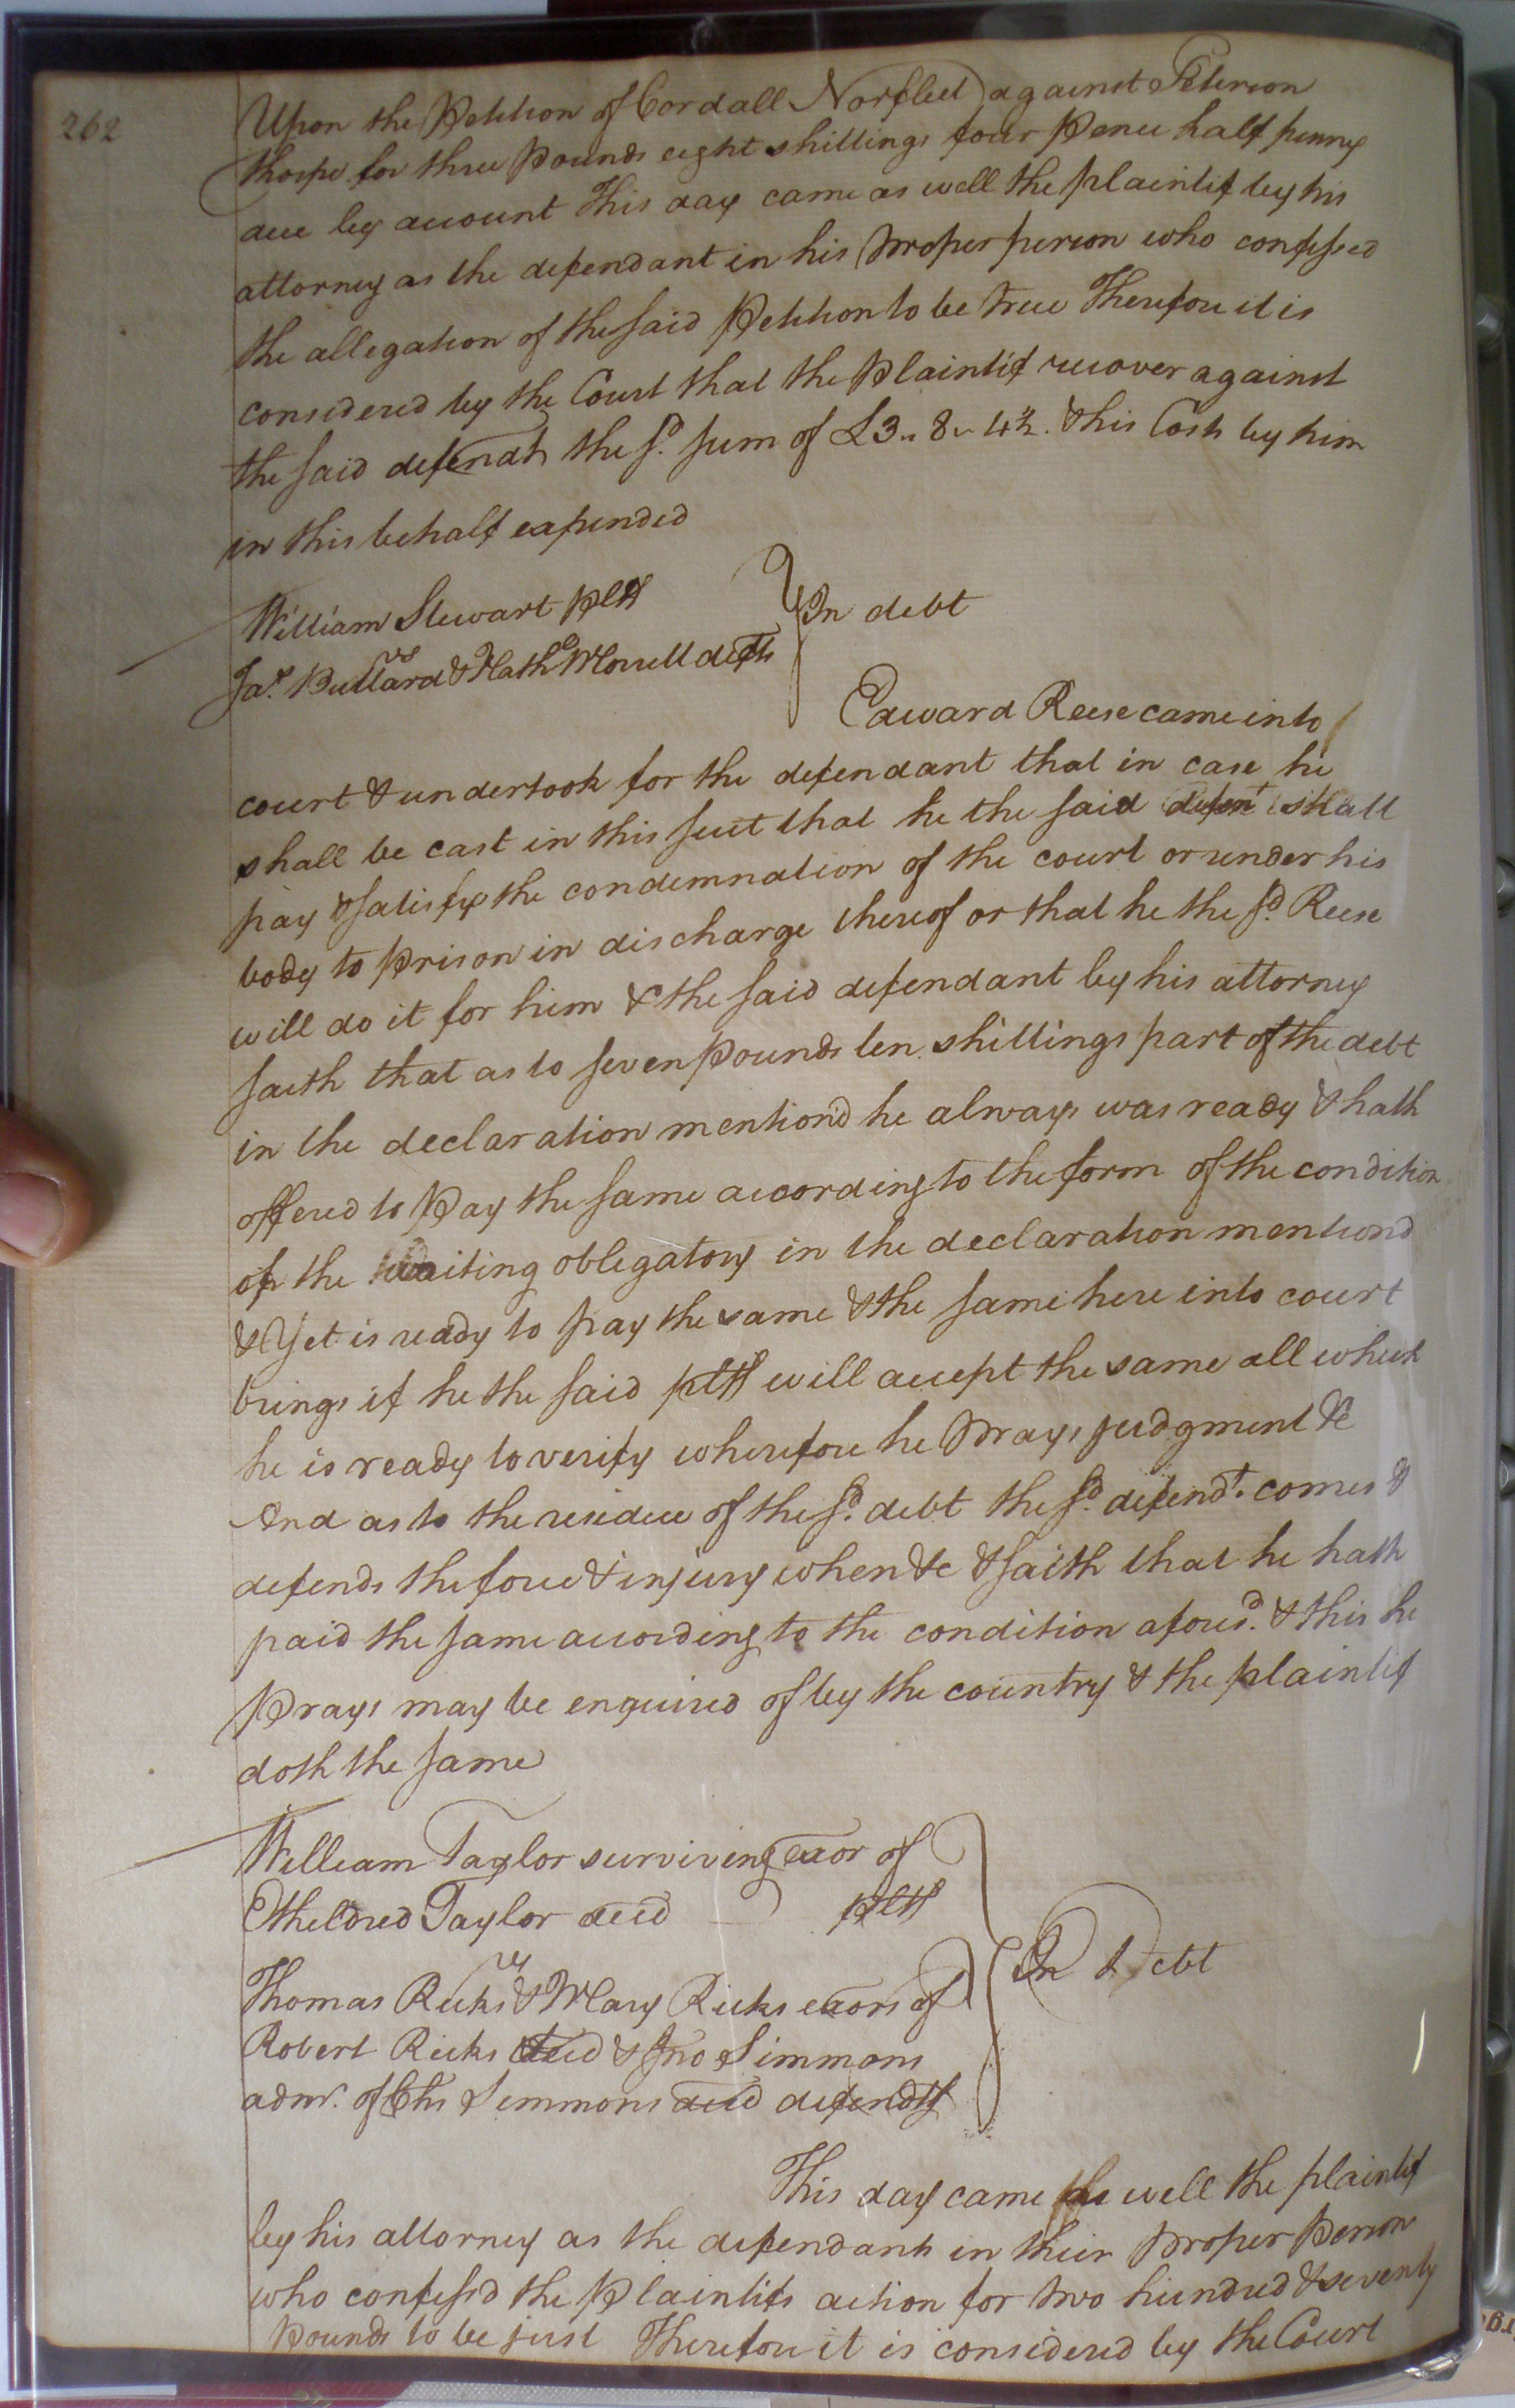 262
Upon the Petition of Cordall Norfleet against Peterson
Thorpe for three Pounds eight shillings four Pence half penny
due by account This day came as well the plaintif by his
attorney as the defendant in his proper person who confessed
the allegation of the said Petition to be true Therefore it is
considered by the Court that the Plaintif recover against
the said defendt the sd. sum of £3.. 8.. 4½. & his Costs by him
in this behalf expended
William Stewart pltf
vs
Jas. Bullard & Nathl Morrell defts
In debt
Edward Reese came into
court & undertook for the defendant that in case he
shall be cast in this suit that he the said defent shall
pay & satisfy the condemnation of the court or render his
body to prison in discharge thereof or that he the sd. Reese
will do it for him & the said defendant by his attorney
saith that as to seven pounds ten shillings part of the debt
in the declaration mention'd he always was ready & hath
offered to Pay the same according to the form of the condition
of the writing obligatory in the declaration mentiond
& Yet is ready to pay the same & the same here into court
brings if he the said pltf will accept the same all which
he is ready to verify wherefore he prays judgment &c
And as to the residue of the sd. debt the sd. defendt. comes &
defends the force & injury when &c & saith that he hath
paid the same according to the condition aforesd. & this he
prays may be enquired of by the country & the plaintif
doth the same
William Taylor surviving exor of
Etheldred Taylor decd pltf
vs
Thomas Ricks & Mary Ricks exors of
Robert Ricks decd & Jno Simmons
admr. of Chs Simmons decd defendts
In Debt
This day came as well the plaintif
by his attorney as the defendants in their proper Person
who confess'd the Plaintifs action for two hundred & seventy
Pounds to be just Therefore it is considered by the Court